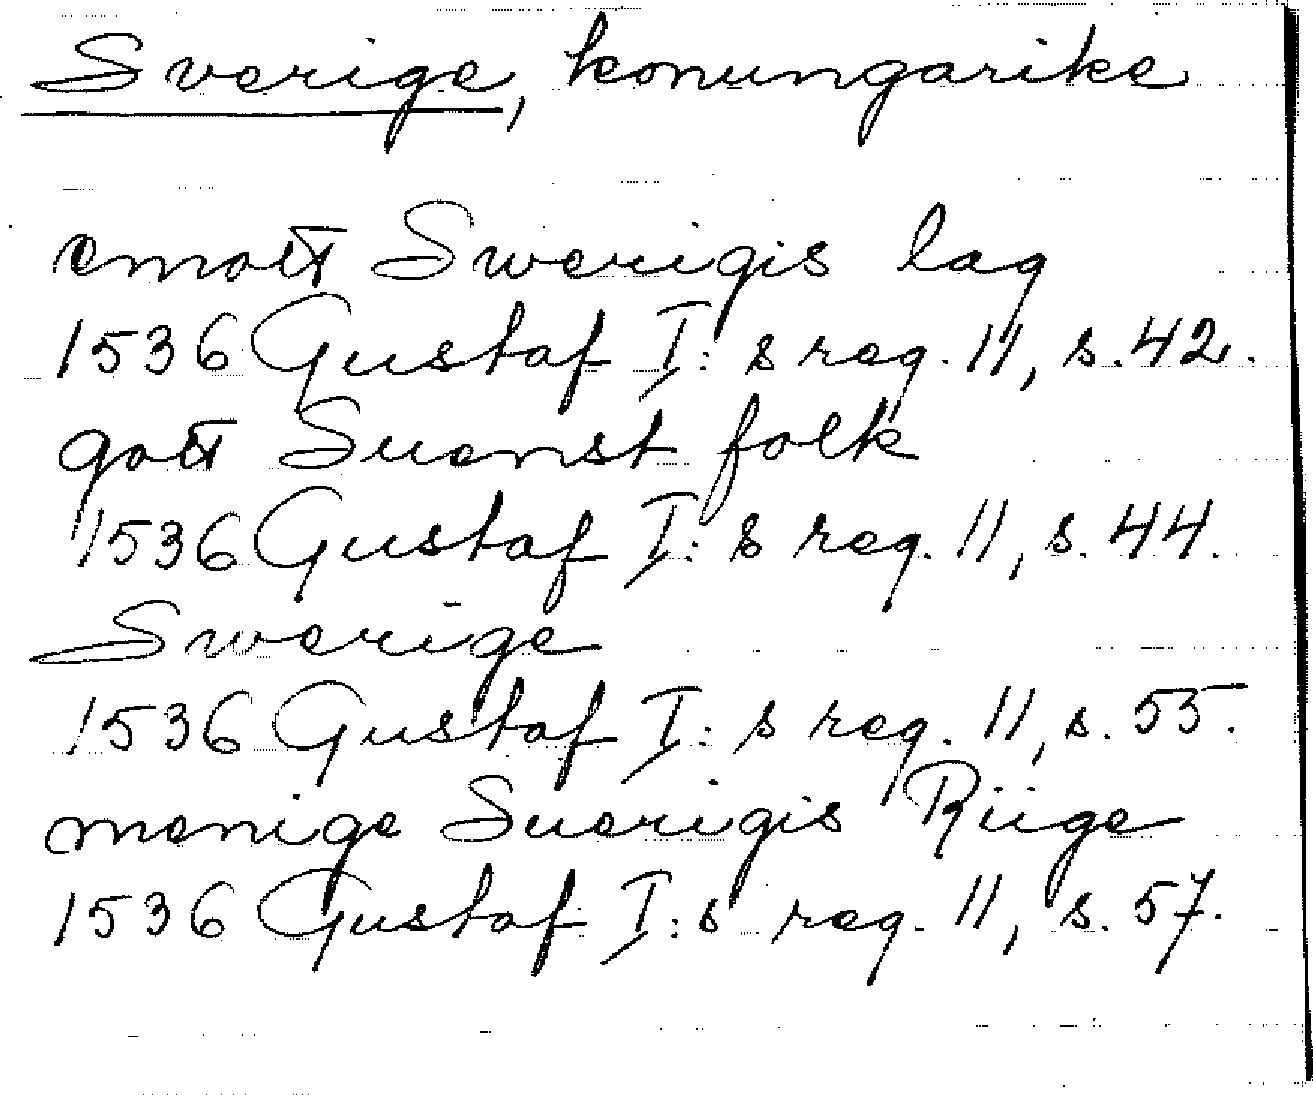 Sverige, konungarike
emott Swerigis lag
1536 Gustaf I:s reg. 11, s. 42.
gott Suenst folk
1536 Gustaf I:s reg. 11, s. 44.
Swerige
1536 Gustaf I:s reg. 11, s. 55.
menige Suerigis Riige
1536 Gustaf I:s reg. 11, s. 57.